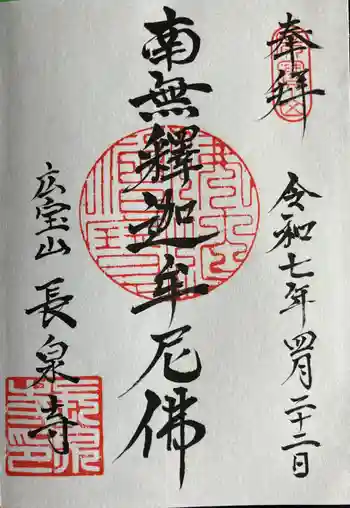 奉拝
令和七年四月二十二日
南無釋迦牟尼佛
広宝山
長泉寺